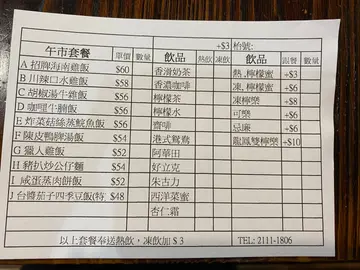 +$3 枱號:
午市套餐 單價 數量 飲品 熱飲 凍飲 跟餐 數量
A 招牌海南雞飯 $60 香滑奶茶 熱,檸檬蜜 +$3
B 川辣口水雞飯 $58 香濃咖啡 凍,檸檬蜜 +$6
C 胡椒湯牛雜飯 $56 檸檬茶 凍檸樂 +$8
D 咖哩牛腩飯 $56 檸檬水 可樂 +$6
E 炸菜菇絲蒸鯇魚飯 $56 齋啡 忌廉 +$6
F 陳皮鴨脾湯飯 $54 港式鴛鴦 龍鳳雙檸樂 +$10
G 獵人雞飯 $52 阿華田
H 豬扒炒公仔麵 $54 好立克
I 咸蛋蒸肉餅飯 $52 朱古力
J 台醬茄子四季豆飯(特) $48 西洋菜蜜
杏仁霜
以上套餐奉送熱飲，凍飲加 $ 3 TEL: 2111-1806